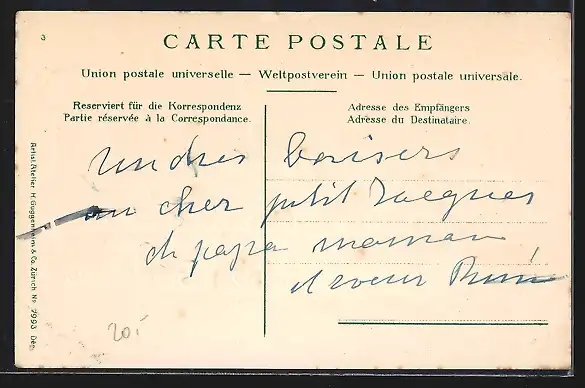 3
CARTE POSTALE
Union postale universelle — Weltpostverein — Union postale universale.
Reserviert für die Korrespondenz
Partie réservée à la Correspondance.
Adresse des Empfängers
Adresse du Destinataire.
tendres baisers
au cher petit Jacques
de papa maman
et
Artist. Atelier H. Guggenheim & Co. Zürich No. 7993 Dép.
20.-